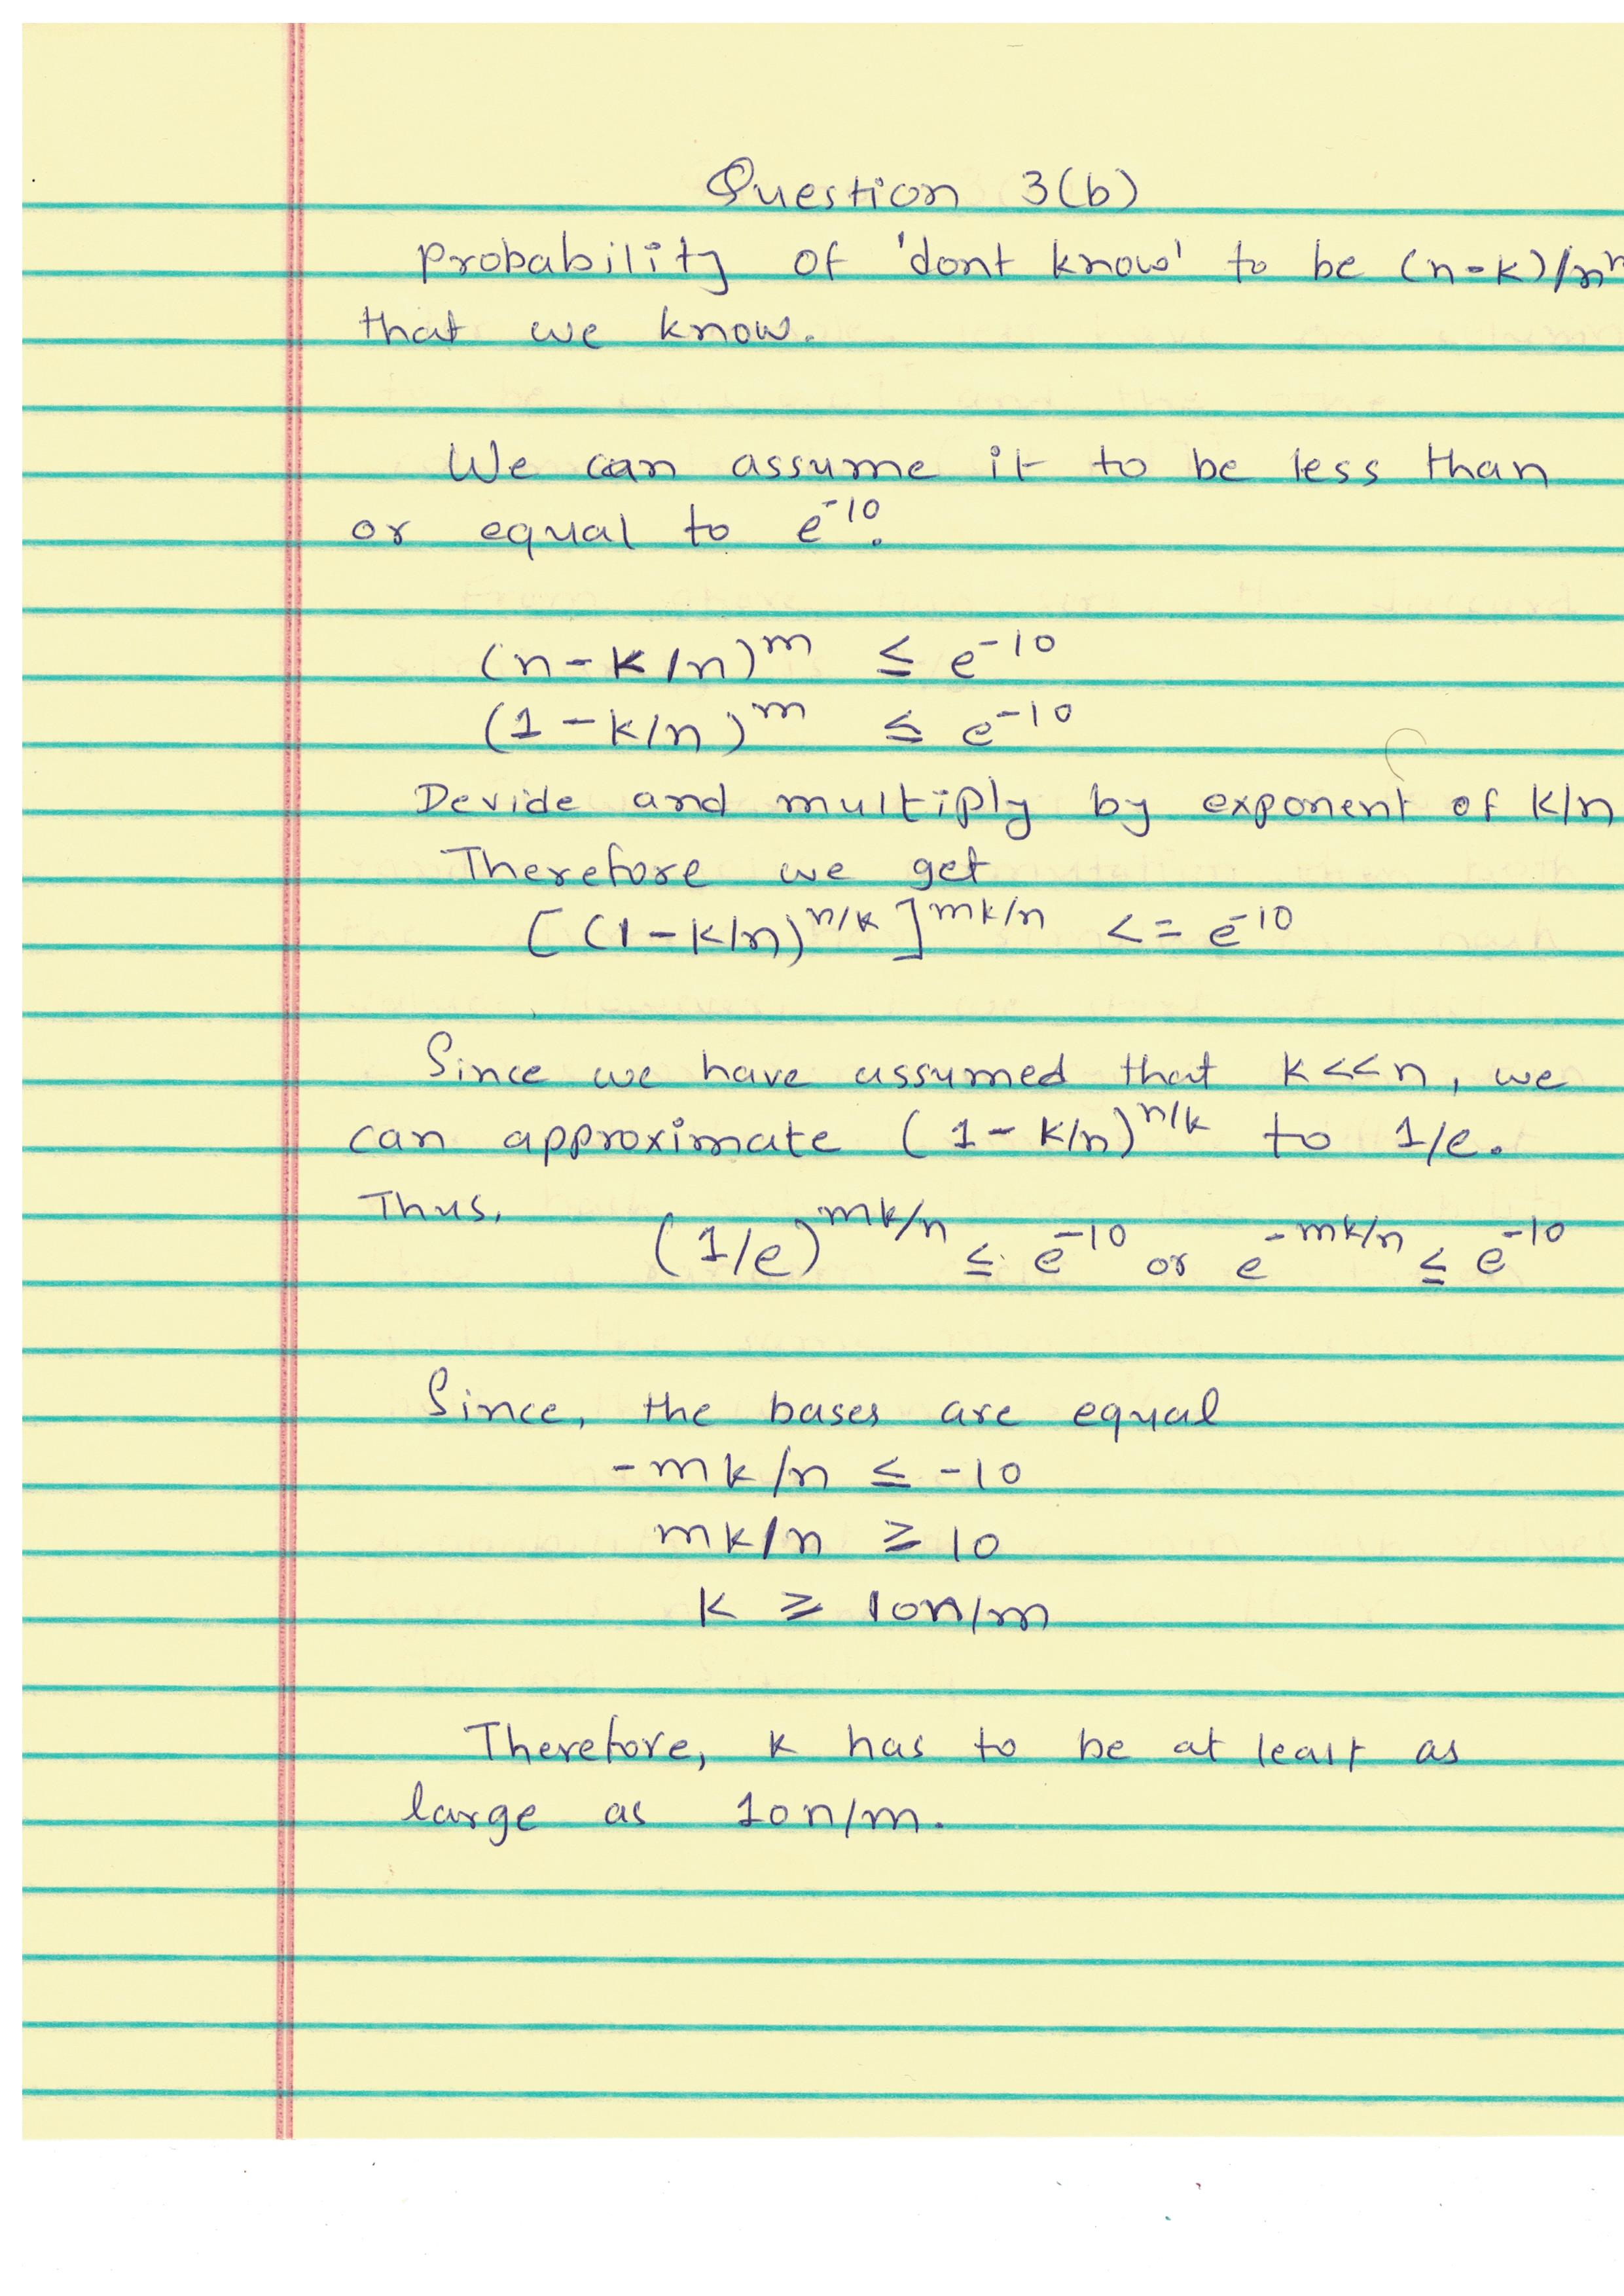 Question 3(b)
probability of 'dont know' to be (n-k)/n
that we know.
We can assume it to be less than
or equal to e^-10.
(n-k/n)^m ≤ e^-10
(1-k/n)^m ≤ e^-10
Devide and multiply by exponent of k/n
Therefore we get
[(1-k/n)^n/k]^mk/n <= e^-10
Since we have assumed that k<<n, we
can approximate (1-k/n)^n/k to 1/e.
Thus, (1/e)^mk/n ≤ e^-10 or e^-mk/n ≤ e^-10
Since, the bases are equal
-mk/n ≤ -10
mk/n ≥ 10
k ≥ 10n/m
Therefore, k has to be at least as
large as 10n/m.